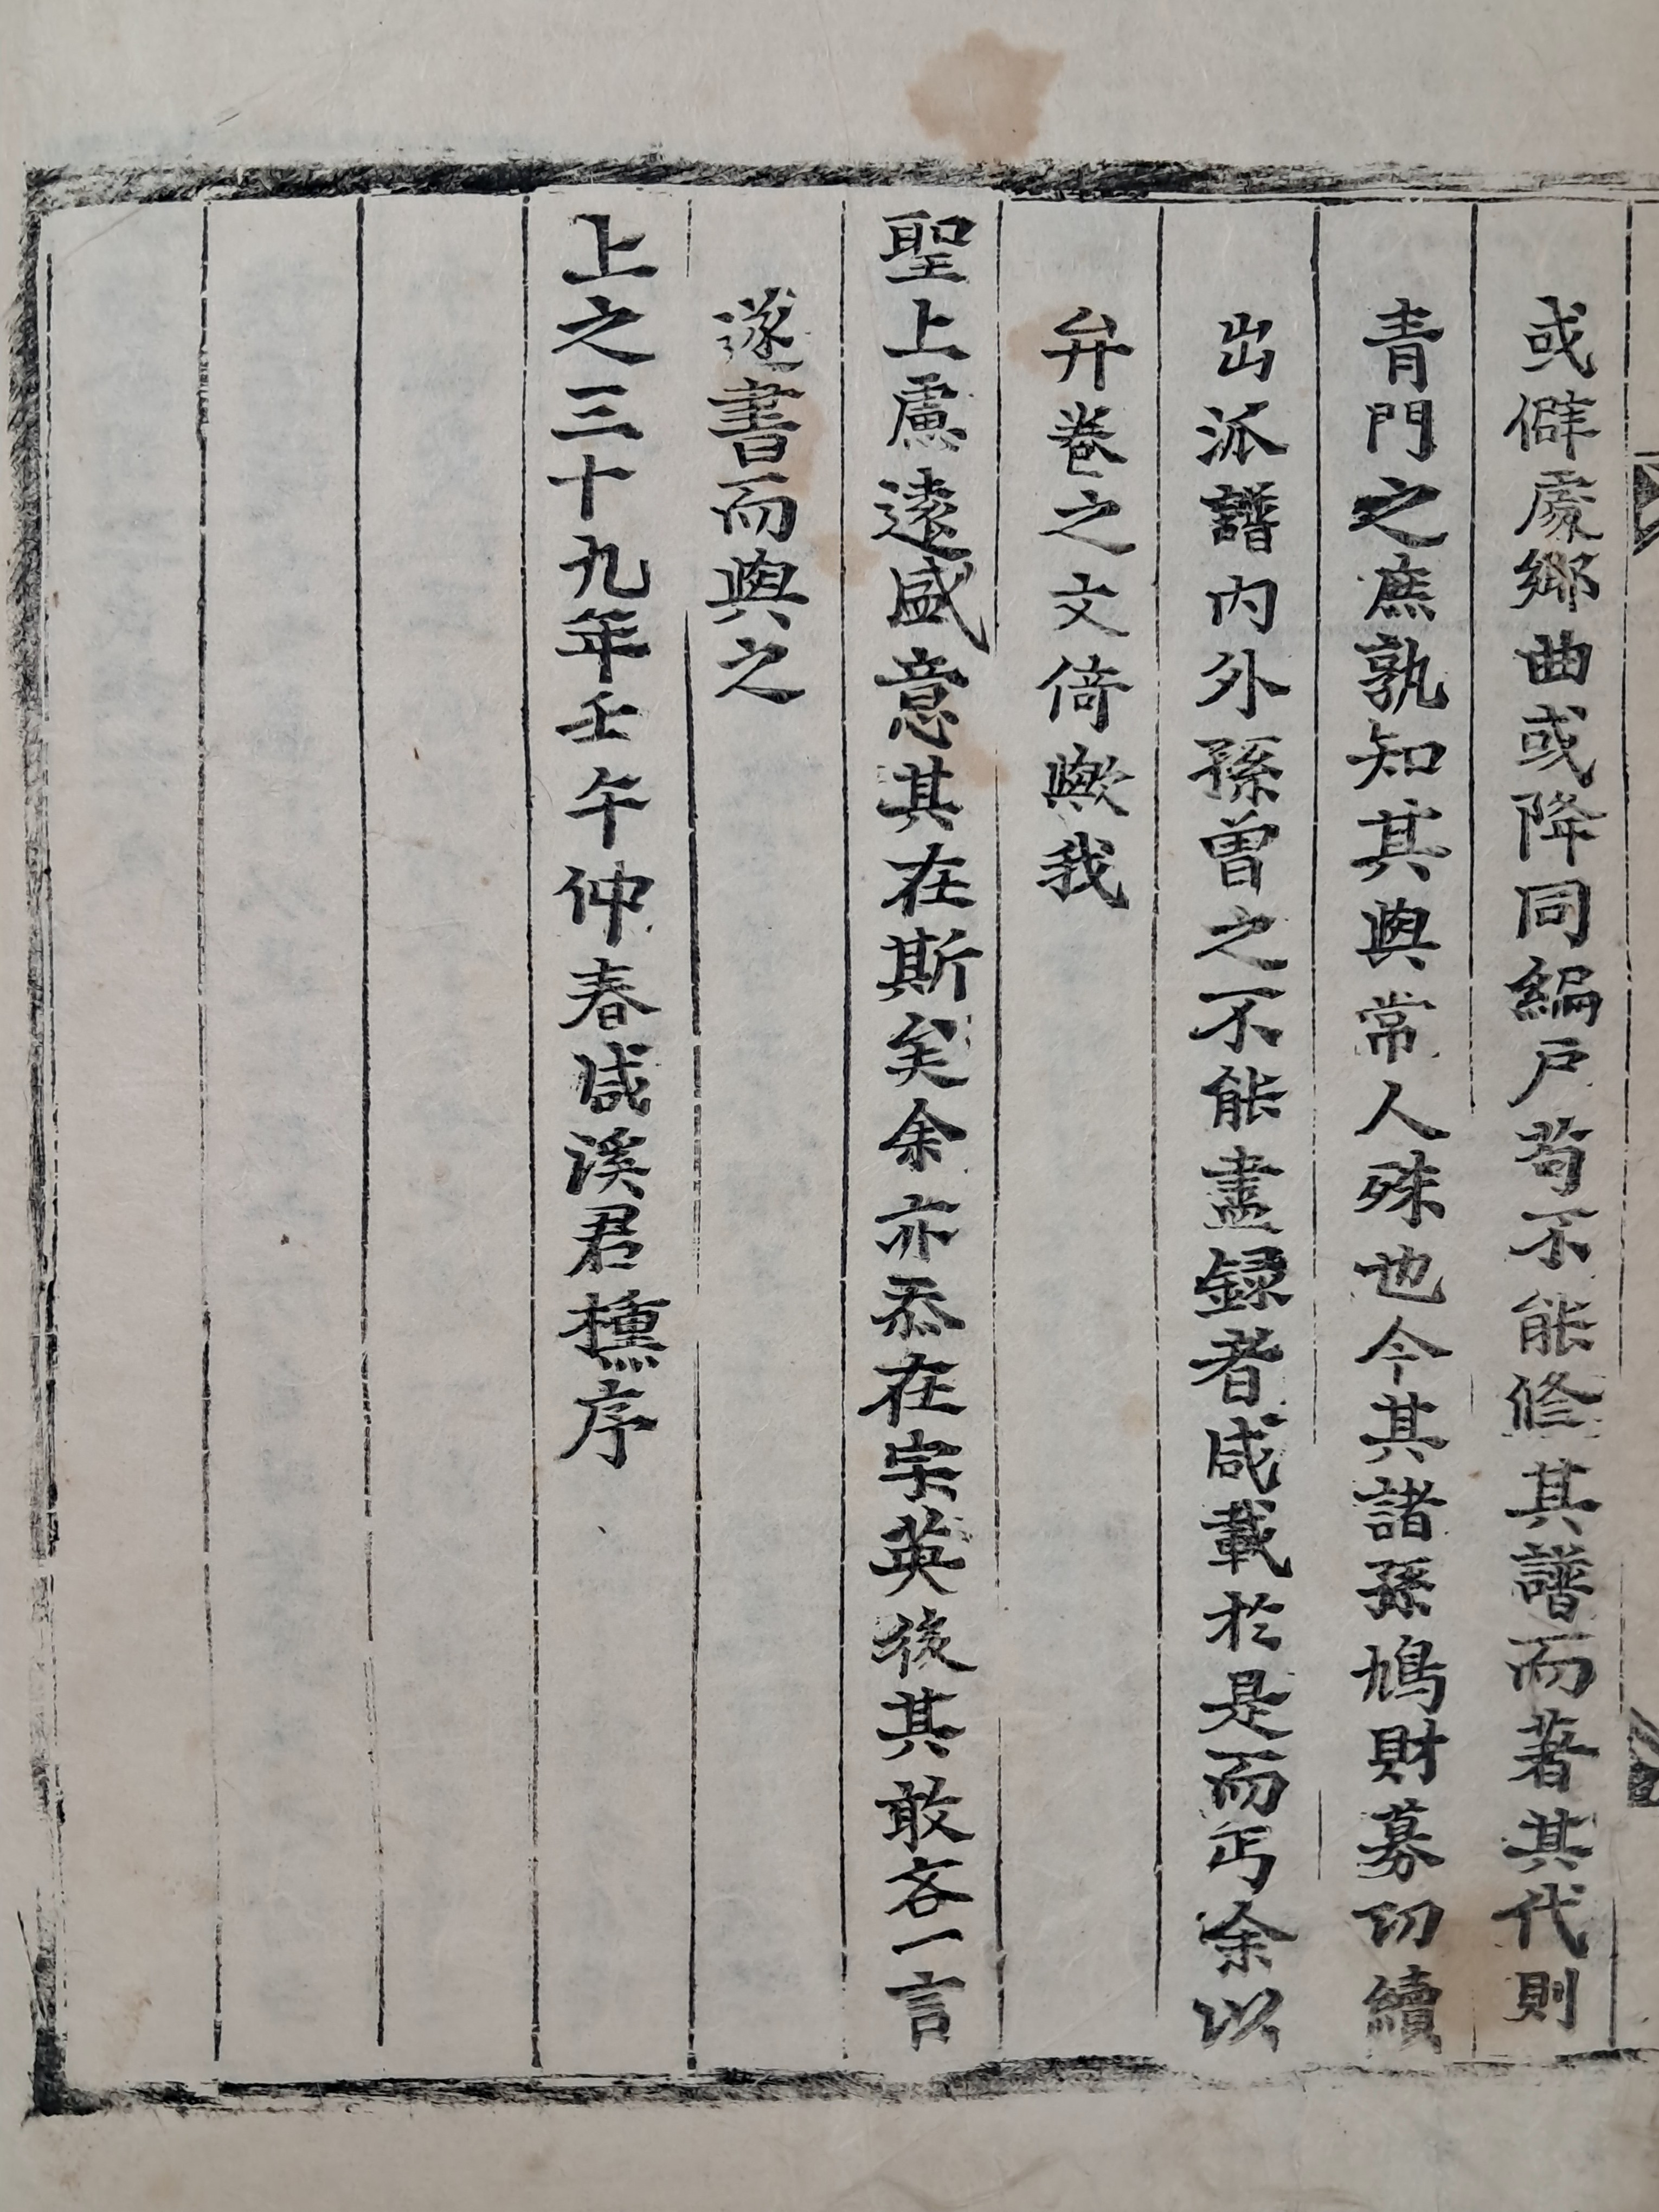 或僻處鄉曲或降同編戶苟不能修其譜而著其代則
青門之庶孰知其與常人殊也今其諸孫鳩財募切續
出派譜內外孫曾之不能盡録者咸載於是而丐余以
弁卷之文倚歟我
聖上慮遠盛意其在斯矣余亦忝在宗英後其敢吝一言
遂書而與之
上之三十九年壬午仲春咸溪君櫄序